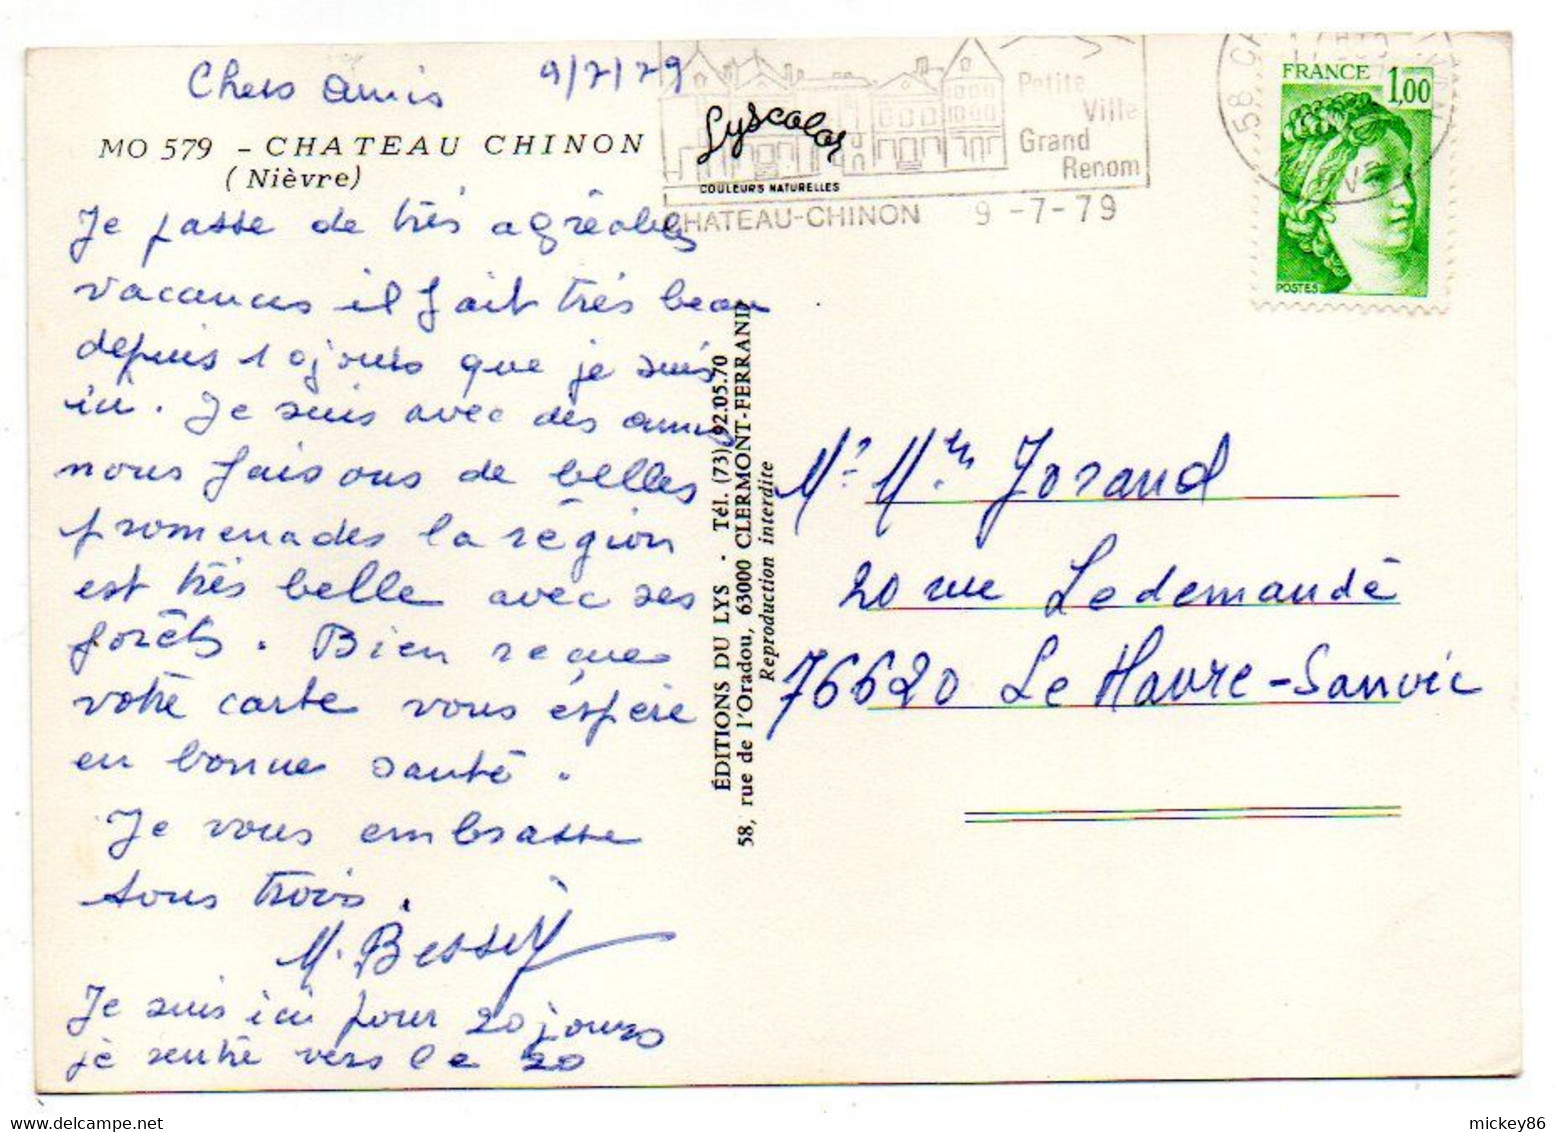 Chers amis 9/7/79
MO 579 - CHATEAU CHINON
(Nièvre)
Je passe de très agréables
vacances il fait très beau
depuis 10 jours que je suis
ici. Je suis avec des amis
nous faisons de belles
promenades la région
est très belle avec ses
forêts. Bien reçue
votre carte vous éspère
en bonne santé.
Je vous embrasse
tous trois.
M. Bessey
Je suis ici pour 20 jours
je rentre vers le 20
Lyscolor
COULEURS NATURELLES
Petite
Ville
Grand
Renom
CHATEAU-CHINON 9-7-79
58
FRANCE 1,00
POSTES
ÉDITIONS DU LYS . Tél. (73) 92.05.70
58, rue de l'Oradou, 63000 CLERMONT-FERRAND
Reproduction interdite
Mr Mme Jorand
20 rue Ledemandé
76620 Le Havre-Sanvic
mickey86